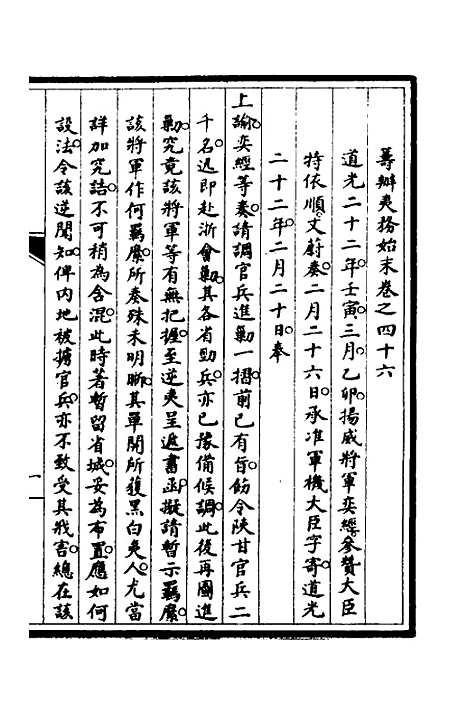 籌辦夷務始末卷之四十六
道光二十二年壬寅三月乙卯揚威將軍奕經參贊大臣
特依順文蔚奏二月二十六日承准軍機大臣字寄道光
二十二年二月二十日奉
上諭奕經等奏請調官兵進勦一摺前已有旨飭令陝甘官兵二
千名迅即赴浙會勦其各省勁兵亦已豫備候調此後再圖進
勦究竟該將軍等有無把握至逆夷呈遞書函擬請暫示羈縻
該將軍作何羈縻所奏殊未明晰其單開所獲黑白夷人尤當
詳加究詰不可稍為含混此時著暫留省城妥為布置應如何
設法令該逆聞知俾內地被擄官兵亦不致受其戕害總在該
一